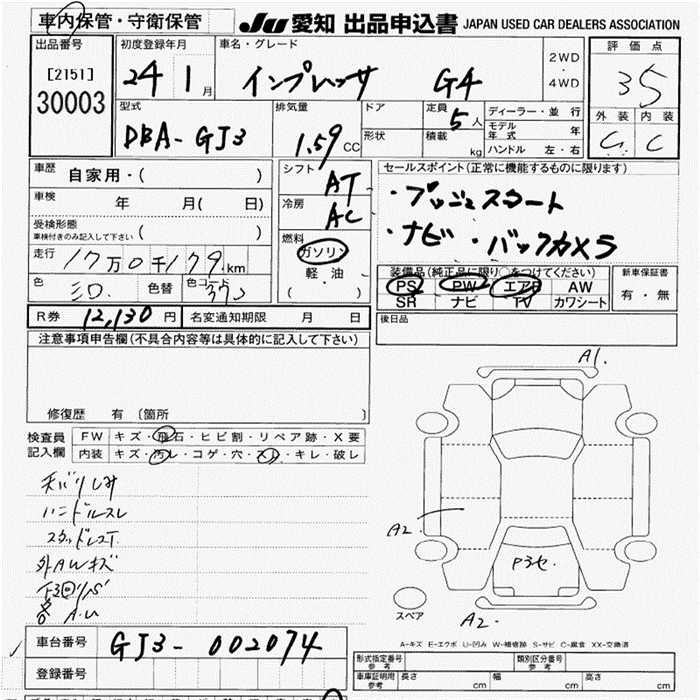 車内保管・守衛保管 JU 愛知 出品申込書 JAPAN USED CAR DEALERS ASSOCIATION
出品番号 初度登録年月 車名・グレード 2WD ・ 4WD 評価点
[2151] 24 1 月 インプレッサ G4 35
30003
型式 排気量 ドア 定員 5 人 ディーラー・並行 外装 内装
DBA-GJ3 1.59 CC 形状 積載 kg モデル年式 年 C C
ハンドル 左・右
車歴 自家用・( ) シフト AT セールスポイント(正常に機能するものに限ります)
車検 年 月( 日) 冷房 AC ・プッシュスタート
受検形態 車検付きのみ記入して下さい ( ) 燃料 ・ナビ ・バックカメラ
走行 17万0千179km ガソリン
軽油
( )
色 色替 色コード
装備品(純正品に限り○をつけてください) 新車保証書
PS PW エアB AW 有・無
SR ナビ TV カワシート
R券 12,130 円 名変通知期限 月 日 後日品
注意事項申告欄(不具合内容等は具体的に記入して下さい)
修復歴 有 〔箇所 〕
検査員記入欄 FW キズ・飛石・ヒビ割・リペア跡・X要
内装 キズ・汚レ・コゲ・穴・スレ・キレ・破レ
ハンドルスレ
外AWキズ
A1.
A2.
A2.
スペア
A-キズ E-エクボ U-凹み W-補修跡 S-サビ C-腐食 XX-交換済
車台番号 GJ3-002074
登録番号
形式指定番号 参考 類別区分番号 参考
車庫証明用 参考 長さ cm 幅 cm 高さ cm